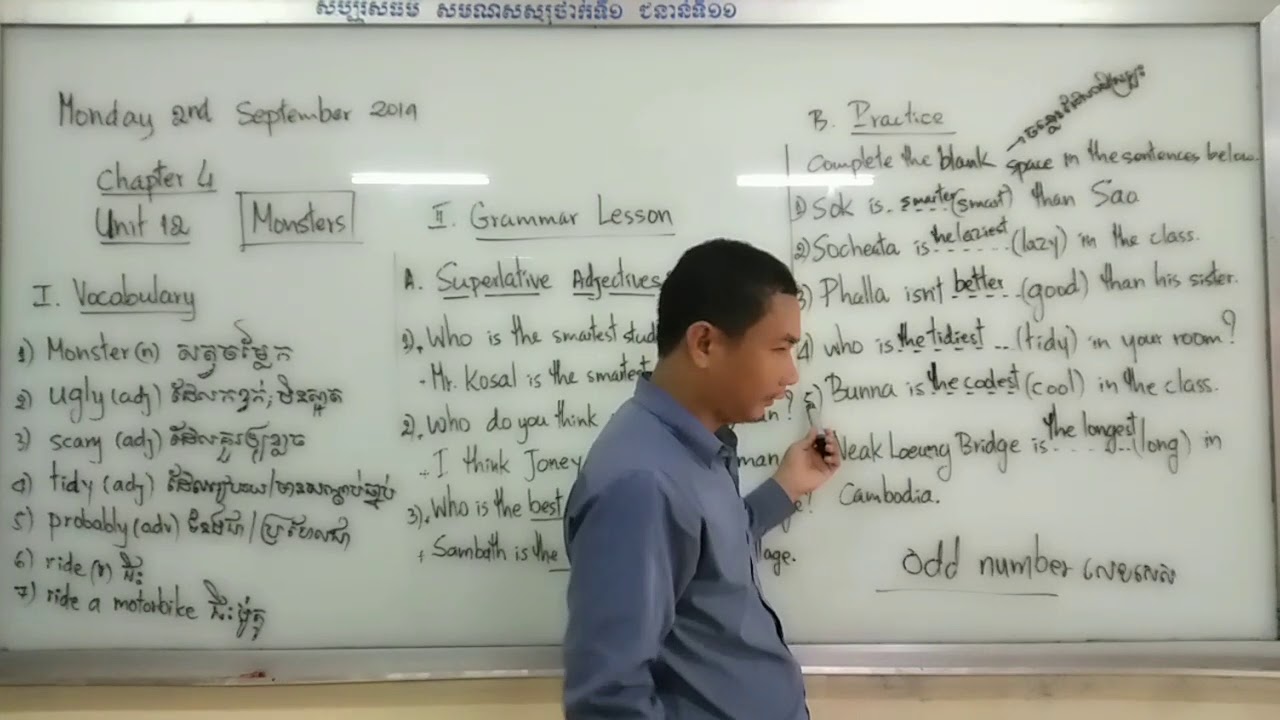 Monday 2nd September 2019
Chapter 4
Unit 12
Monsters
I. Vocabulary
1) Monster (n) សត្វចម្លែក
2) ugly (adj) ដែលកខ្វក់, មិនស្អាត
3) scary (adj) ដែលគួរឲ្យខ្លាច
4) tidy (adj)
5) probably (adv)
6) ride (v) ជិះ
7) ride a motorbike ជិះម៉ូតូ
II. Grammar Lesson
A. Superlative Adjectives
1). Who is the smartest stud
- Mr. Kosal is the smartest
2). Who do you think
+ I think Joney man
3). Who is the best
+ Sambath is the lage.
B. Practice
Complete the blank space in the sentences below.
1) Sok is smarter (smart) than Sao
2) Socheata is the laziest (lazy) in the class.
3) Phalla isn't better (good) than his sister.
4) who is the tidiest (tidy) in your room?
5) Bunna is the coolest (cool) in the class.
Neak Loeung Bridge is the longest (long) in
Cambodia.
odd number លេខសេស